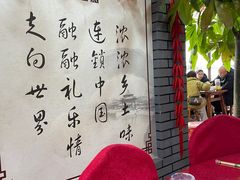 浓浓乡土味
连锁中国
融融礼乐情
走向世界